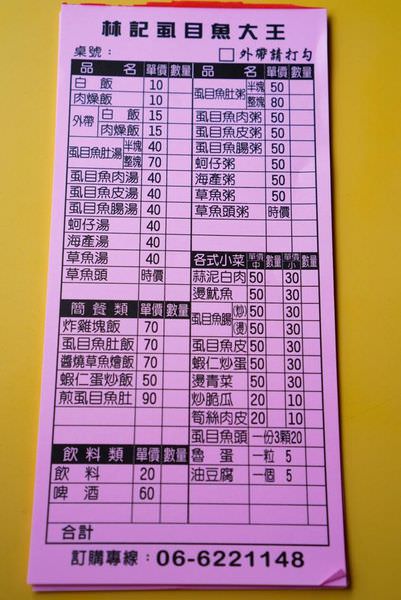 林記虱目魚大王
桌號： □外帶請打勾
品 名 單價 數量
白 飯 10
肉燥飯 10
外帶 白 飯 15
肉燥飯 15
虱目魚肚湯 半塊 40
整塊 70
虱目魚肉湯 40
虱目魚皮湯 40
虱目魚腸湯 40
蚵仔湯 40
海產湯 40
草魚湯 40
草魚頭 時價
簡餐類 單價 數量
炸雞塊飯 70
虱目魚肚飯 70
醬燒草魚燴飯 70
蝦仁蛋炒飯 50
煎虱目魚肚 90
飲料類 單價 數量
飲 料 20
啤 酒 60
品 名 單價 數量
虱目魚肚粥 半塊 50
整塊 80
虱目魚肉粥 50
虱目魚皮粥 50
虱目魚腸粥 50
蚵仔粥 50
海產粥 50
草魚粥 50
草魚頭粥 時價
各式小菜 單價中 數量 單價小 數量
蒜泥白肉 50 30
燙魷魚 50 30
虱目魚腸 (炒) 50 30
(燙) 50 30
虱目魚皮 50 30
蝦仁炒蛋 50 30
燙青菜 50 30
炒脆瓜 20 10
筍絲肉皮 20 10
虱目魚頭 一份3顆20
魯 蛋 一粒 5
油豆腐 一個 5
合計
訂購專線：06-6221148